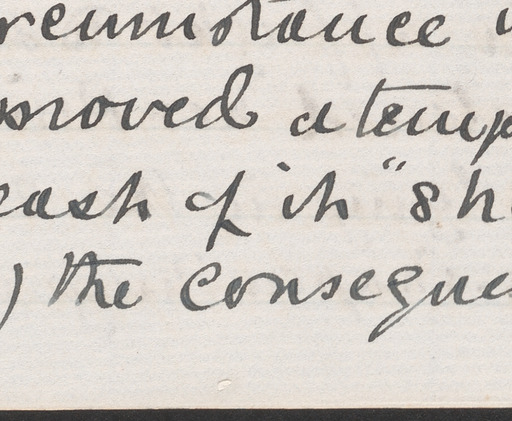 rcumstance
proved a temp
eash of it "8 h
) the conseque